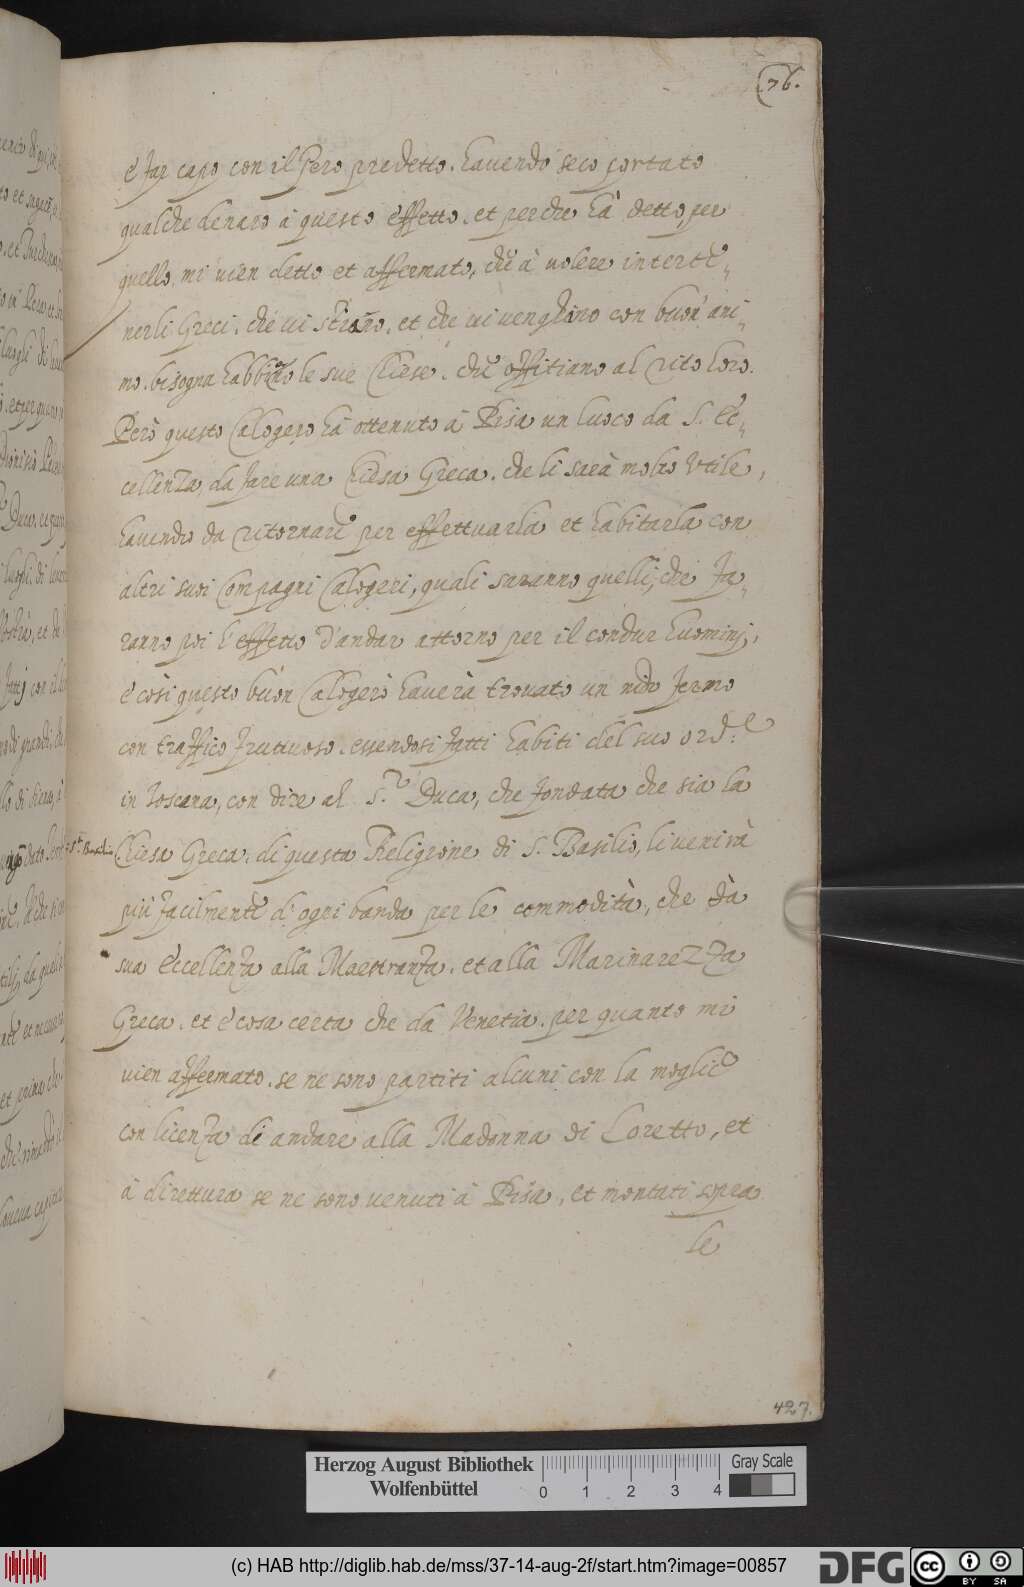 76.
è far capo con il Pero predetto. havendo seco portato
qualche denaro à questo effetto. et perche hà detto, per
quello mi vien detto et affermato, che à volere interte=
nerli Greci, che vi stiano, et che vi venghino con buon' ani=
mo. bisogna habbino le sue Chiese. che offitiano al rito loro.
Però questo Calogero hà ottenuto à Pisa un luoco da S. Ec=
cellenza, da fare una Chiesa Greca. che li sarà molto utile,
havendo da ritornare per effettuarla et habitarla con
altri suoi Compagni Calogeri, quali saranno quelli, che fa=
ranno poi l'effetto d'andar attorno per il condur huominj,
è così questo buon Calogero haverà trovato un nido fermo
con traffico fruttuoso. essendosi fatti habiti del suo ord.e
in Toscana, con dire al S.r Duca, che fondata che sia la
Chiesa Greca. di questa Religione di S. Basilio, li venirà
più facilmente d'ogni banda per le commodità, che dà
sua Eccellenza alla Maestranza. et alla Marinarezza
Greca. et è cosa certa che da Venetia. per quanto mi
vien affermato. se ne sono partiti alcuni con la moglie
con licenza di andare alla Madonna di Loretto, et
à direttura se ne sono venuti à Pisa, et montati sopra
le
427.
Herzog August Bibliothek
Wolfenbüttel
0 1 2 3 4
Gray Scale
(c) HAB http://diglib.hab.de/mss/37-14-aug-2f/start.htm?image=00857
DFG
cc BY SA